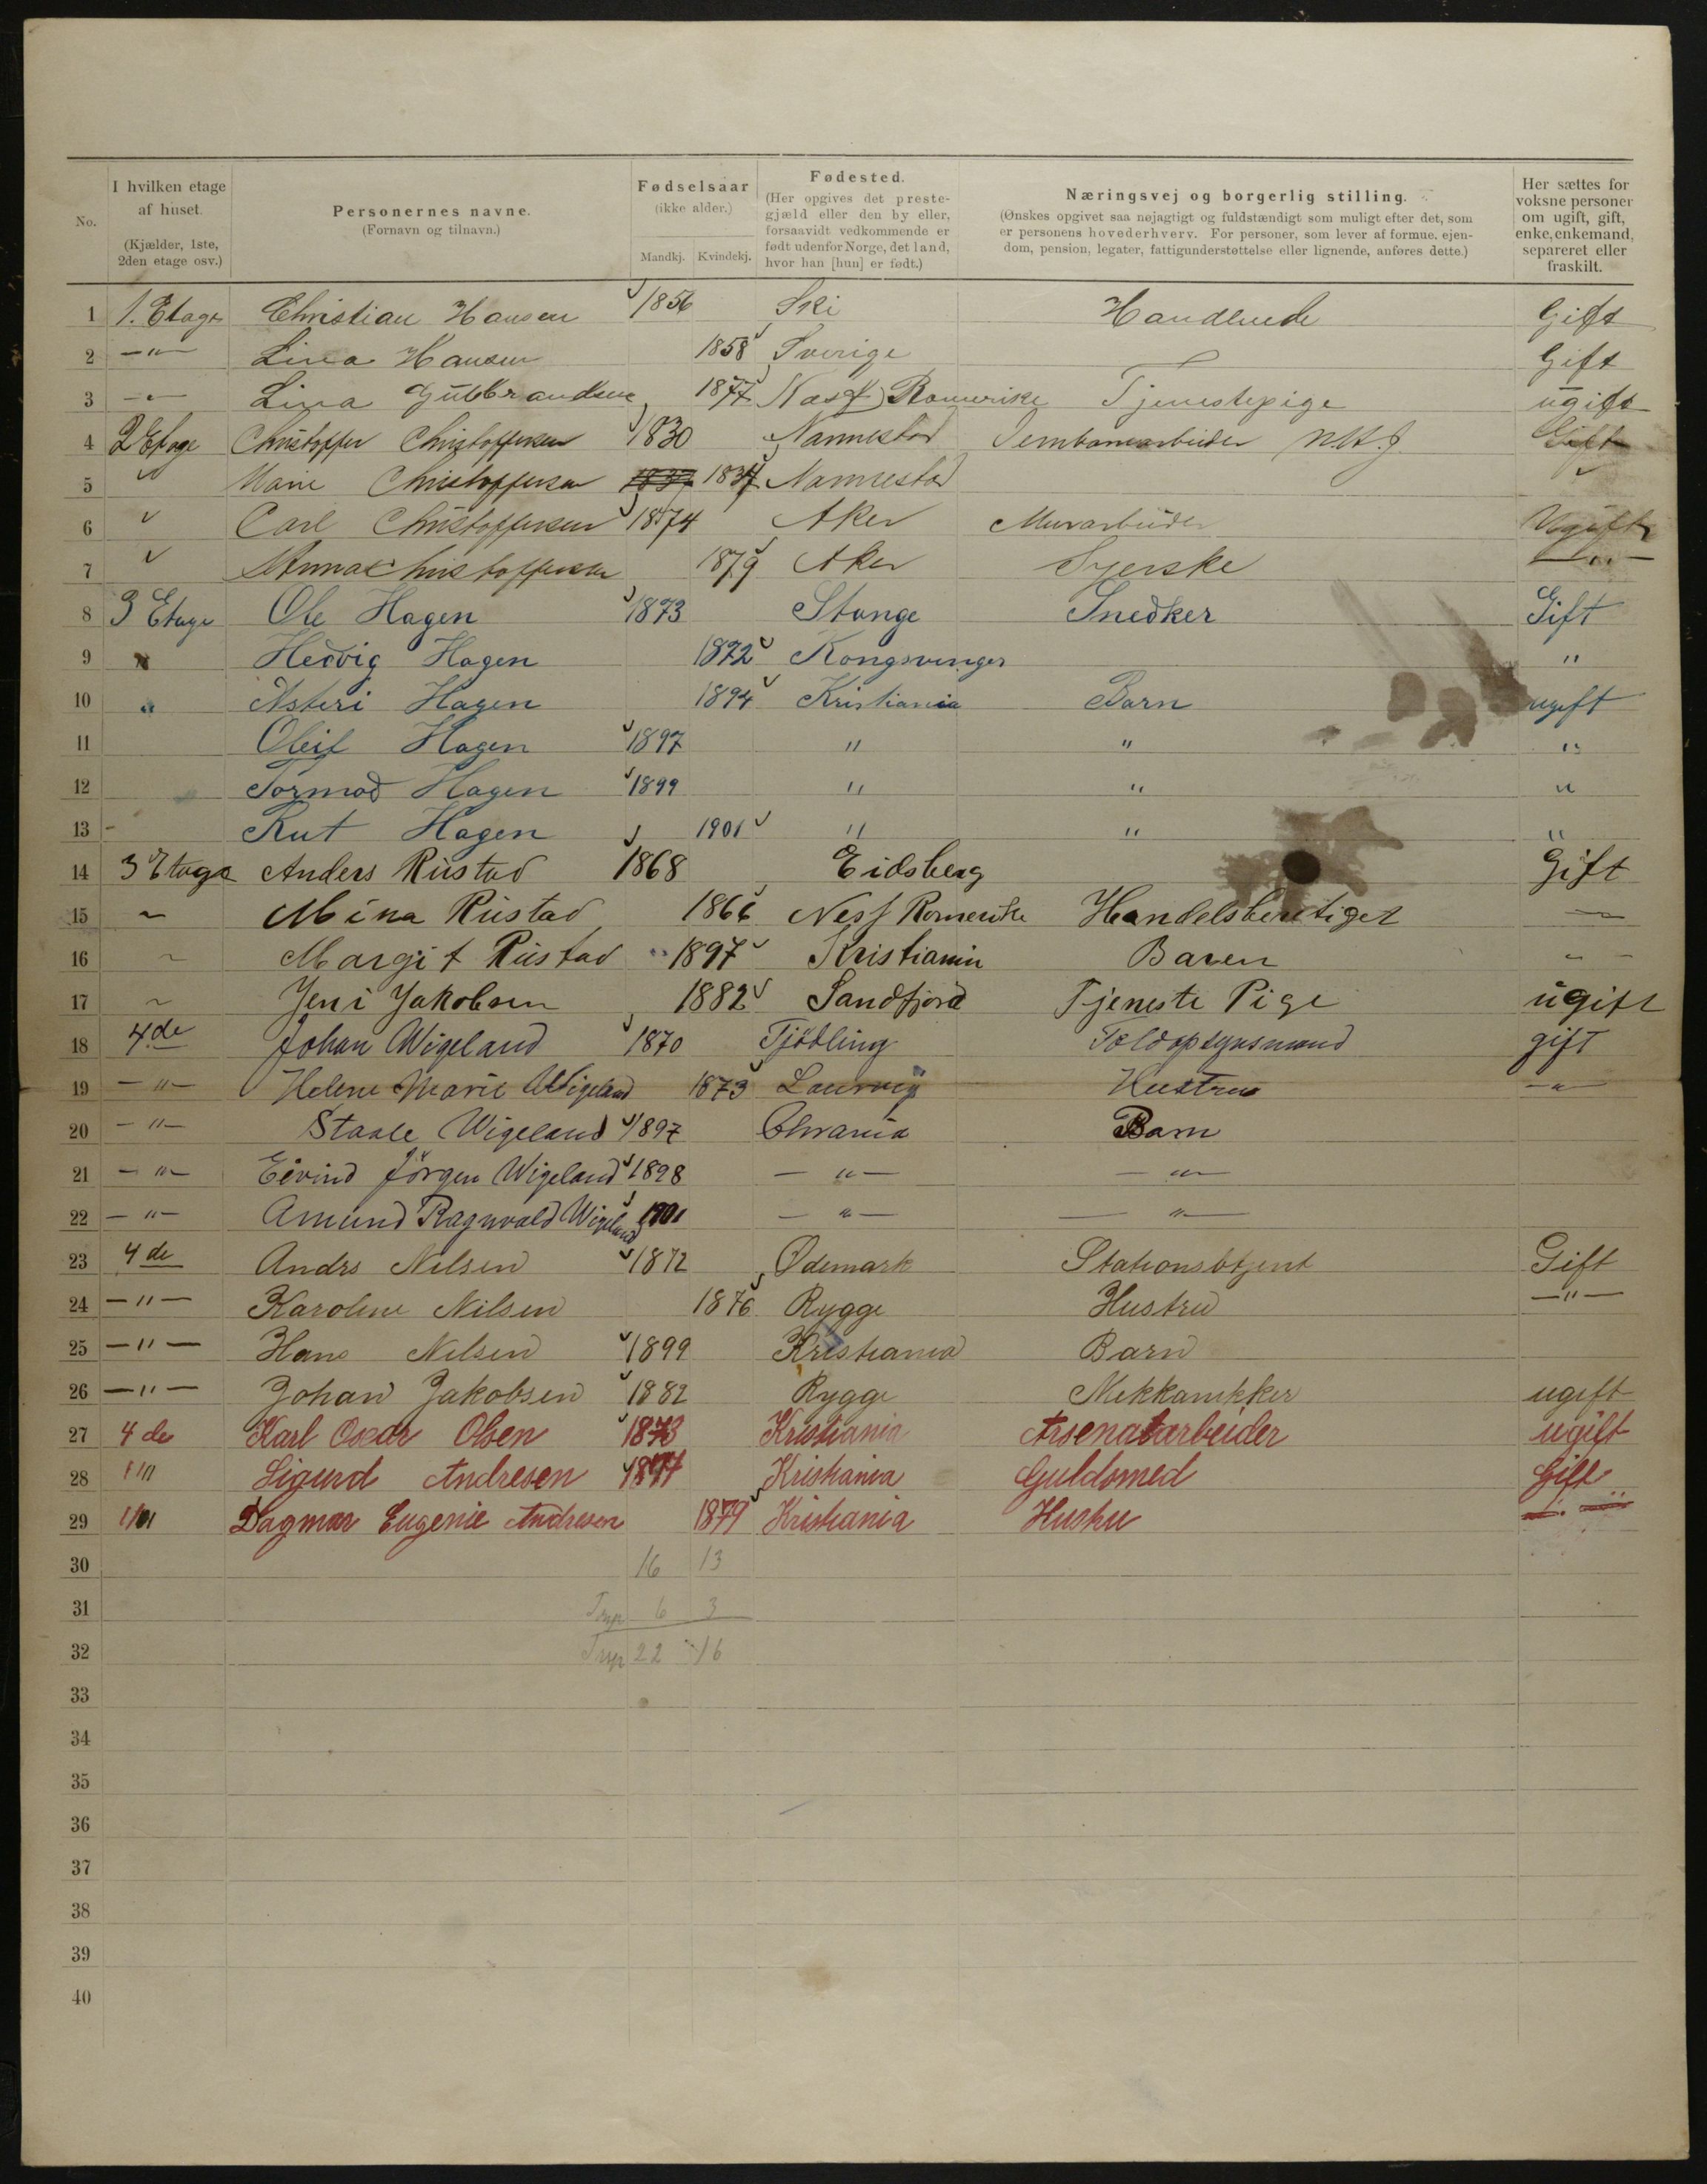 No.
I hvilken etage af huset. (Kjælder, 1ste, 2den etage osv.)
Personernes navne. (Fornavn og tilnavn.)
Fødselsaar (ikke alder.)
Mandkj. Kvindekj.
Fødested. (Her opgives det prestegjæld eller den by eller, forsaavidt vedkommende er født udenfor Norge, det land, hvor han [hun] er født.)
Næringsvej og borgerlig stilling. (Ønskes opgivet saa nøjagtigt og fuldstændigt som muligt efter det, som er personens hovederhverv. For personer, som lever af formue, ejendom, pension, legater, fattigunderstøttelse eller lignende, anføres dette.)
Her sættes for voksne personer om ugift, gift, enke, enkemand, separeret eller fraskilt.
1 1. Etage Christian Hansen 1856 Ski Handlende Gift
2 —"— Lina Hansen 1858 Sverige Gift
3 —"— Lina Gulbrandsen 1877 Næs Romerike Tjenestepige ugift
4 2 Etage Christoffer Christoffersen 1830 Nannestad Jernbanearbeider Gift
5 " Marie Christoffersen 1837 Nannestad "
6 " Carl Christoffersen 1874 Aker Murarbeider Ugift
7 " Anna Christoffersen 1879 Aker Syerske —"—
8 3 Etage Ole Hagen 1873 Stange Snedker Gift
9 " Hedvig Hagen 1872 Kongsvinger "
10 " Asteri Hagen 1894 Kristiania Barn ugift
11 Oleif Hagen 1897 " " "
12 Tormod Hagen 1899 " " "
13 Rut Hagen 1901 " " "
14 3 Etage Anders Rustad 1868 Eidsberg Gift
15 ~ Mina Rustad 1866 Nes Romerike Handelsberetiget —
16 ~ Margit Rustad 1897 Kristiania Baren - -
17 ~ Jeni Jakobsen 1882 Sandfjord Tjeneste Pige ugift
18 4de Johan Wigeland 1870 Tjødling Toldopsynsmand gift
19 —"— Helene Marie Wigeland 1873 Laurvig Hustru —"—
20 —"— Staale Wigeland 1897 Chrania Barn
21 —"— Eivind Jörgen Wigeland 1898 —"— —"—
22 —"— Amund Ragnvald Wigeland 1901 —"— —"—
23 4 de Andrs Nilsen 1872 Ødemark Stationsbtjent Gift
24 —"— Karoline Nilsen 1876 Rygge Hustru —"—
25 —"— Hans Nilsen 1899 Kristiania Barn
26 —"— Johan Jakobsen 1882 Rygge Mekkanikker ugift
27 4 de Karl Oscar Olsen 1873 Kristiania Arsenalarbeider ugift
28 " Sigurd Andresen 1877 Kristiania Guldsmed Gift
29 " Dagmar Eugenie Andresen 1879 Kristiania Hustru
30 16 13
31 6 3
32 22 16
33
34
35
36
37
38
39
40